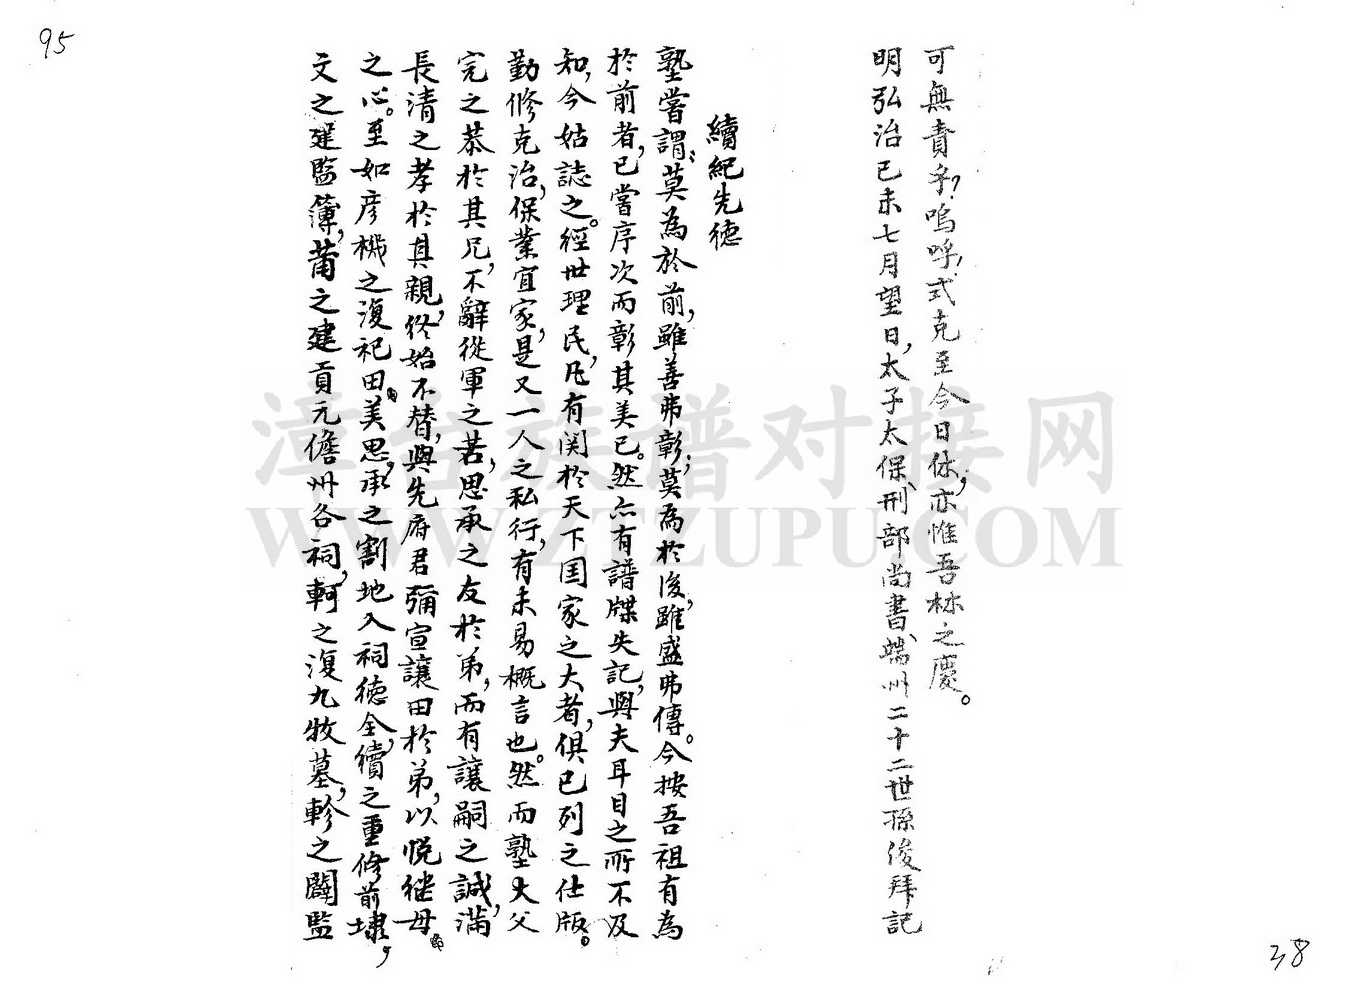 95
可無責乎？嗚呼！式克至今日休，亦惟吾林之慶。
明弘治己未七月望日，太子太保、刑部尚書、端州二十二世孫俊拜記
續紀先德
塾嘗謂：莫為於前，雖善弗彰；莫為於後，雖盛弗傳。今按吾祖有為
於前者，已嘗序次而彰其美已。然亦有譜牒失記，與夫耳目之所不及
知，今姑誌之。經世理民，凡有関於天下国家之大者，俱已列之仕版。
勤修克治，保業宜家，是又一人之私行，有未易概言也。然而塾大父
完之恭於其兄，不辭從軍之苦，思承之友於弟，而有讓嗣之誠，滿
長清之孝於其親，終始不替，與先府君彌宣讓田於弟，以悅继母
之心。至如彦機之復祀田，美思，承之割地入祠德全，續之重修前埭，
文之建監簿，莆之建貢元儋州各祠，軻之復九牧墓，軫之闢監
38
漳台族谱对接网
WWW.ZTZUPU.COM